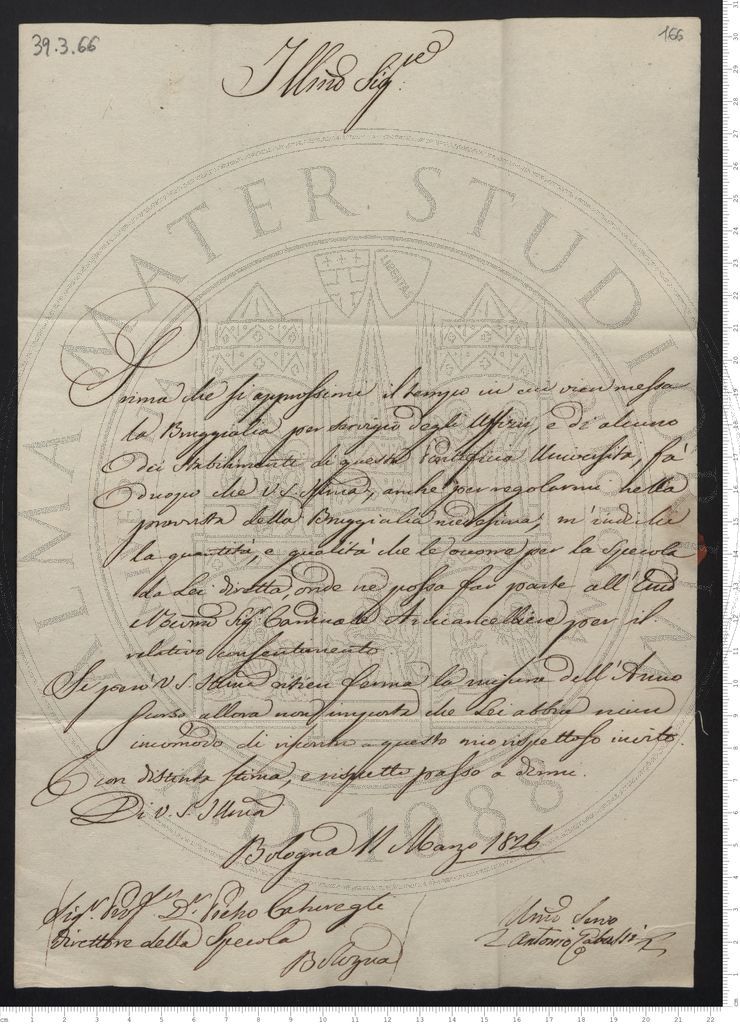 39.3.66
166
Illmo Sig.re
Prima che si approssimi il tempo in cui vien messa
la Bruggialia per servizio degli Uffizi, e di alcuno
dei Stabilimenti di questa Pontificia Università, fa'
d'uopo che V. S. Illma, anche per regolarmi nella
provvista della Bruggialia medesima, m'indichi
la quantità, e qualità che le occorre per la Specola
da Lei diretta, onde ne possa far parte all'Emo
e Rmo Sig.r Cardinale Arcicancelliere per il
relativo consentimento
Se però V. S. Illma ritien ferma la misura dell'Anno
scorso allora non importa che Lei abbia niun
incomodo di riscontro a questo mio rispettoso invito.
E con distinta stima, e rispetto passo a dirmi.
Di V. S. Illma
Bologna 11 Marzo 1826
Sig.r Prof.r D.r Pietro Caturegli
Direttore della Specola
Bologna
Umo Servo
Antonio
ALMA MATER STUD
A.D. 1088
LIBERTAS
cm 1 2 3 4 5 6 7 8 9 10 11 12 13 14 15 16 17 18 19 20 21 22